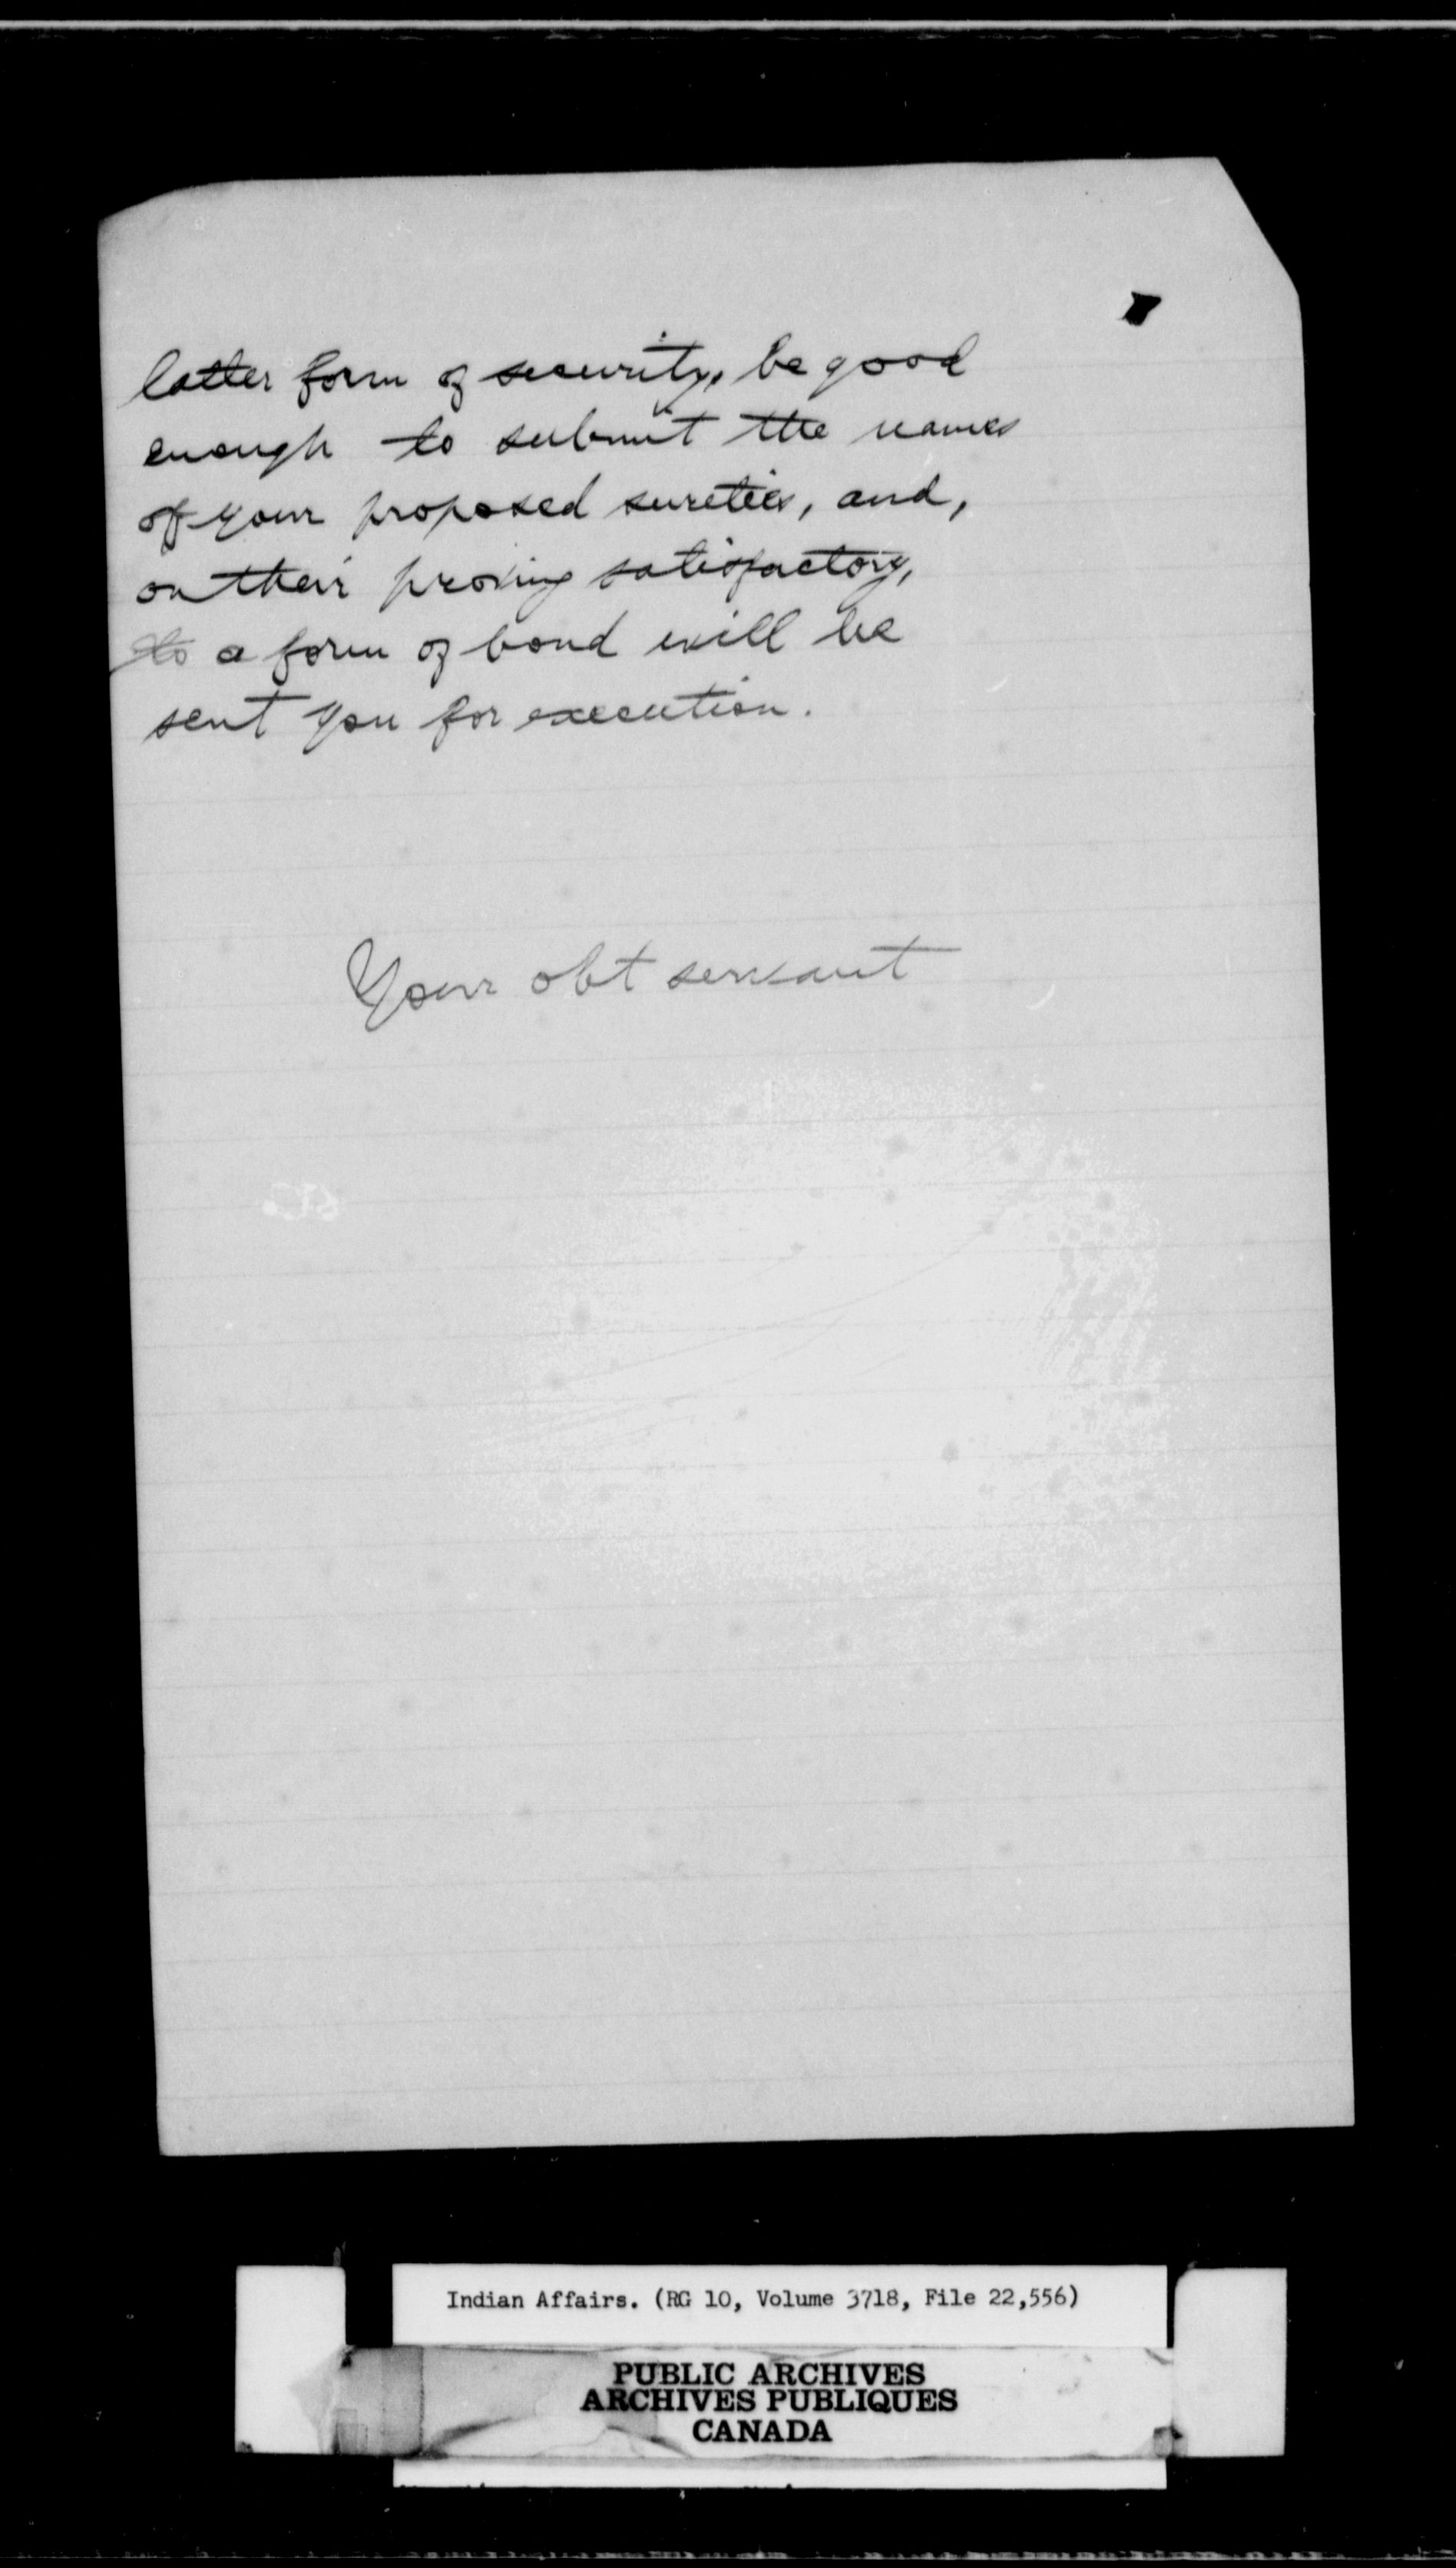 latter form of security, be good
enough to submit the names
of your proposed sureties, and,
on their proving satisfactory,
to a form of bond will be
sent you for execution.
Your obt servant
Indian Affairs. (RG 10, Volume 3718, File 22,556)
PUBLIC ARCHIVES
ARCHIVES PUBLIQUES
CANADA